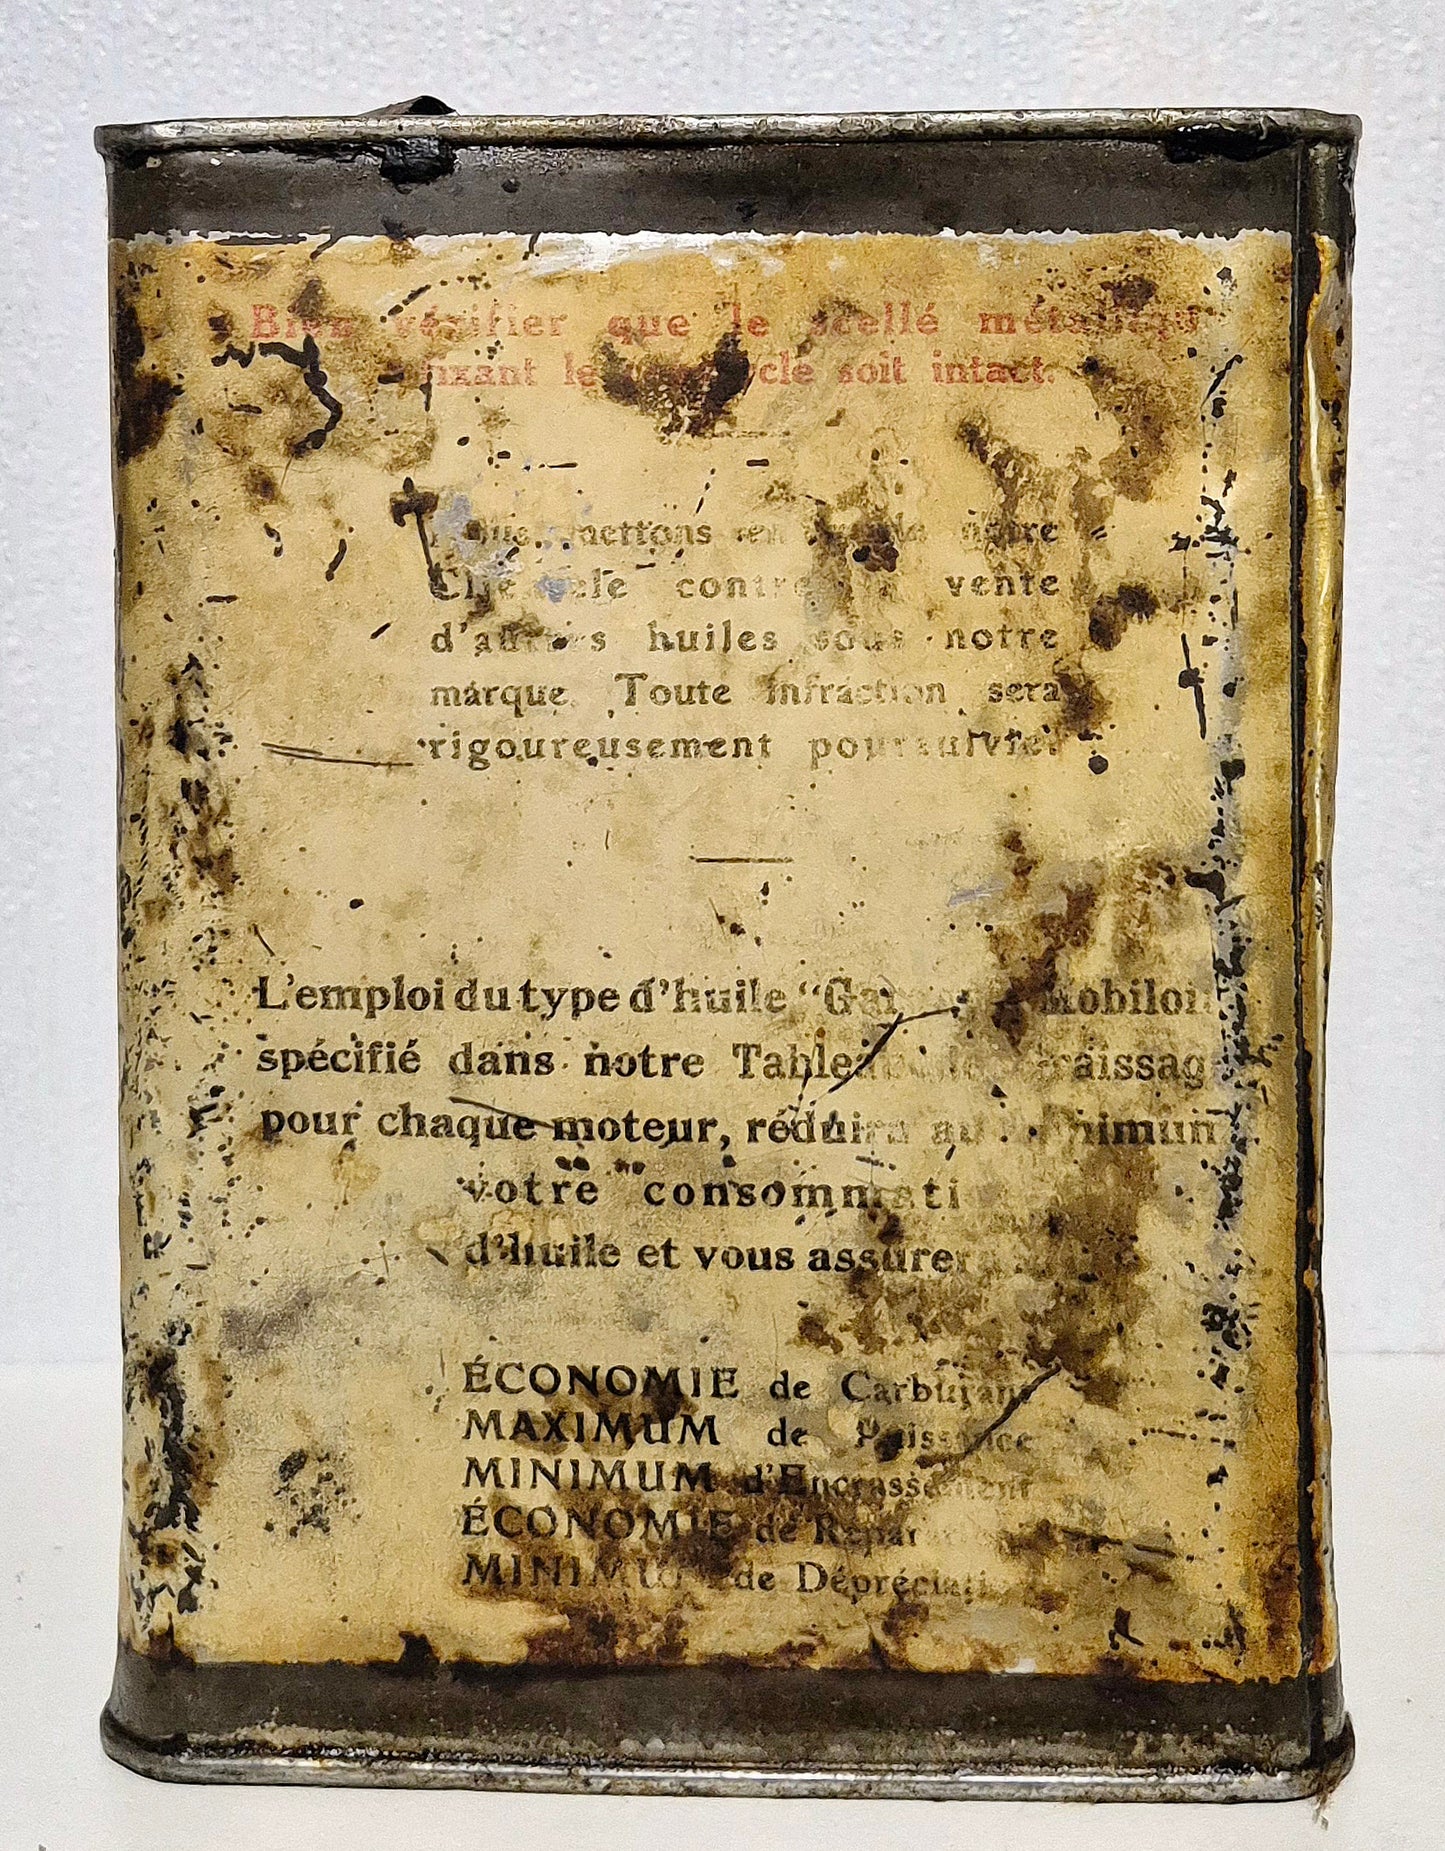 Bien vérifier que le scellé métallique
fixant le couvercle soit intact.
Nous mettons en garde notre
Clientèle contre la vente
d'autres huiles sous notre
marque. Toute infraction sera
rigoureusement poursuivie.
L'emploi du type d'huile “Gargoyle Mobiloil
spécifié dans notre Tableau de Graissage
pour chaque moteur, réduira au minimum
votre consommation
d'huile et vous assurera
ÉCONOMIE de Carburant
MAXIMUM de Puissance
MINIMUM d'Encrassement
ÉCONOMIE de Réparations
MINIMUM de Dépréciation